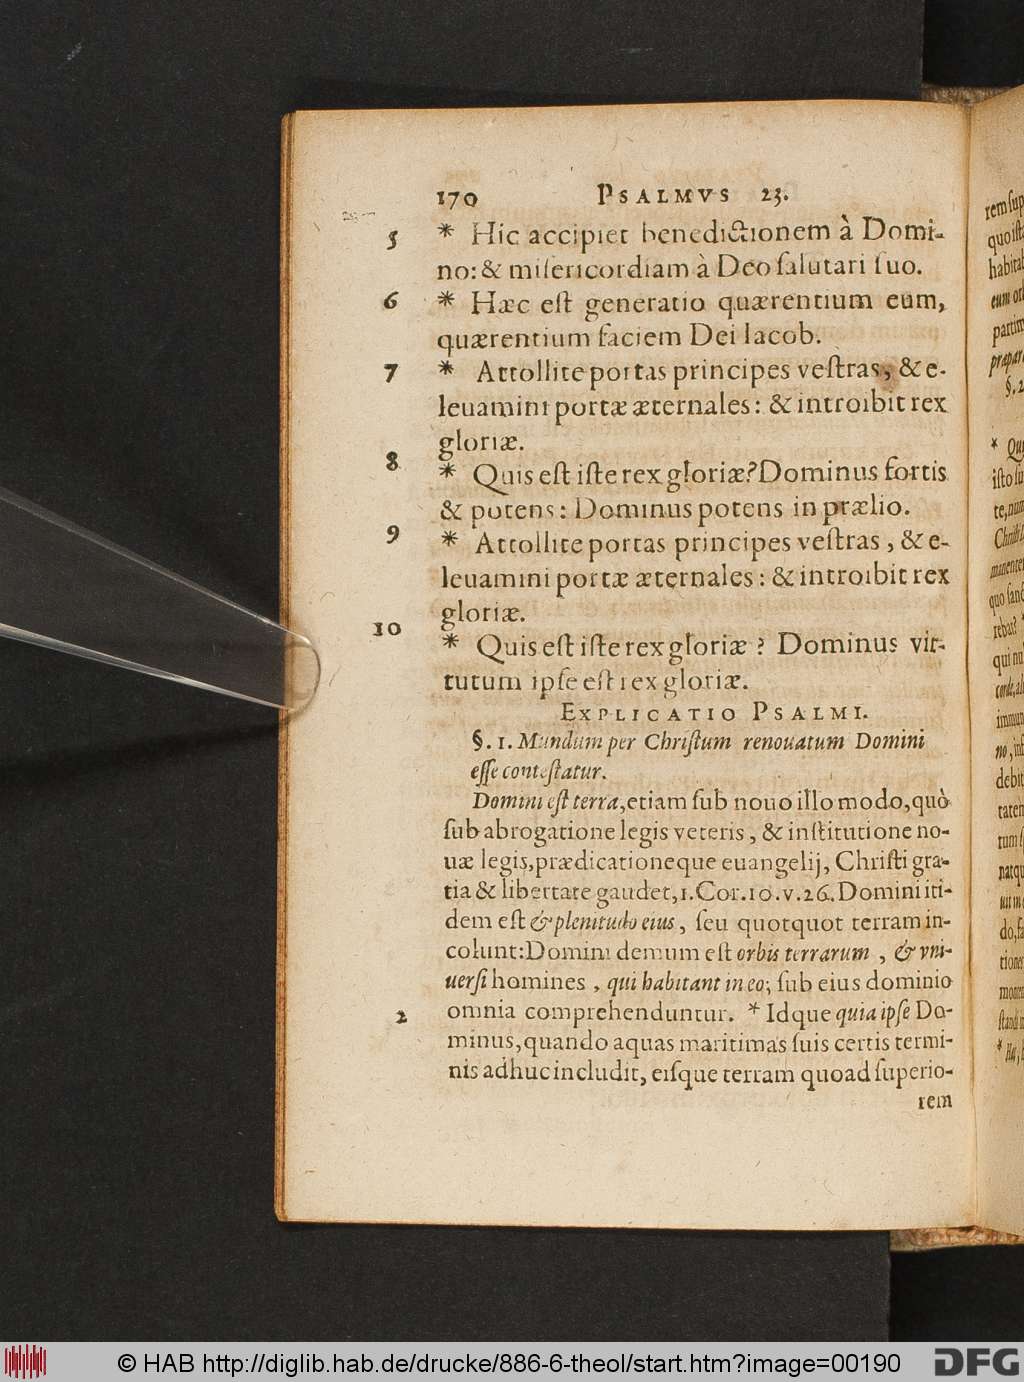 170 PSALMVS 23.
5 * Hic accipiet benedictionem à Domi-
no: & misericordiam à Deo salutari suo.
6 * Hæc est generatio quærentium eum,
quærentium faciem Dei Iacob.
7 * Attollite portas principes vestras, & e-
leuamini portæ æternales: & introibit rex
gloriæ.
8 * Quis est iste rex gloriæ? Dominus fortis
& potens: Dominus potens in prælio.
9 * Attollite portas principes vestras, & e-
leuamini portæ æternales: & introibit rex
gloriæ.
10 * Quis est iste rex gloriæ? Dominus vir-
tutum ipse est rex gloriæ.
EXPLICATIO PSALMI.
§. 1. Mundum per Christum renouatum Domini
esse contestatur.
Domini est terra, etiam sub nouo illo modo, quò
sub abrogatione legis veteris, & institutione no-
uæ legis, prædicationeque euangelij, Christi gra-
tia & libertate gaudet, 1. Cor. 10. v. 26. Domini iti-
dem est & plenitudo eius, seu quotquot terram in-
colunt: Domini demum est orbis terrarum, & vni-
uersi homines, qui habitant in eo; sub eius dominio
2 omnia comprehenduntur. * Idque quia ipse Do-
minus, quando aquas maritimas suis certis termi-
nis adhuc includit, eisque terram quoad superio-
rem
rem sup
quo ist
habitab
eum or
partim
præpar
§. 2
* Qui
isto su
te, num
Christi
manente
quo sanc
rebas?
qui no
corde, al
immun
no, inf
debit
taten
rum
natqu
do, fa
tione
* Hic,
© HAB http://diglib.hab.de/drucke/886-6-theol/start.htm?image=00190
DFG